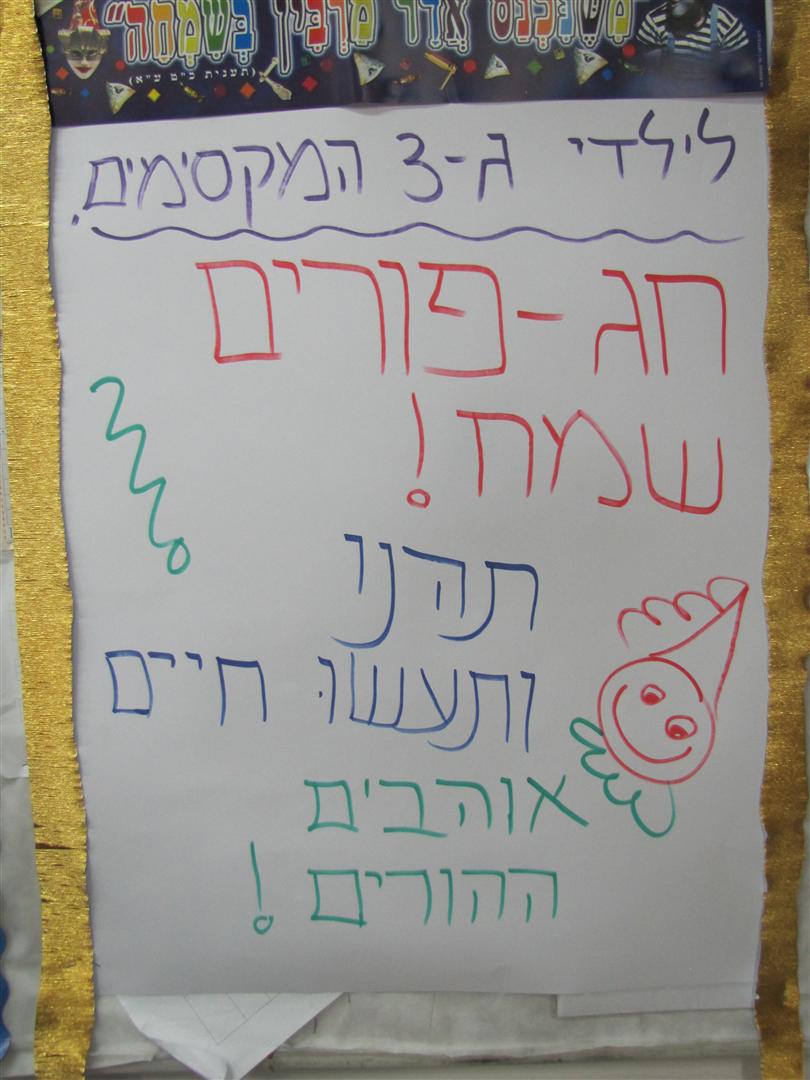 משנכנס אדר מרבין בשמחה"
(תענית כ"ט ע"א)
לילדי ג-3 המקסימים.
חג-פורים
שמח!
תהנו
ותעשוּ חיים
אוהבים
ההורים!